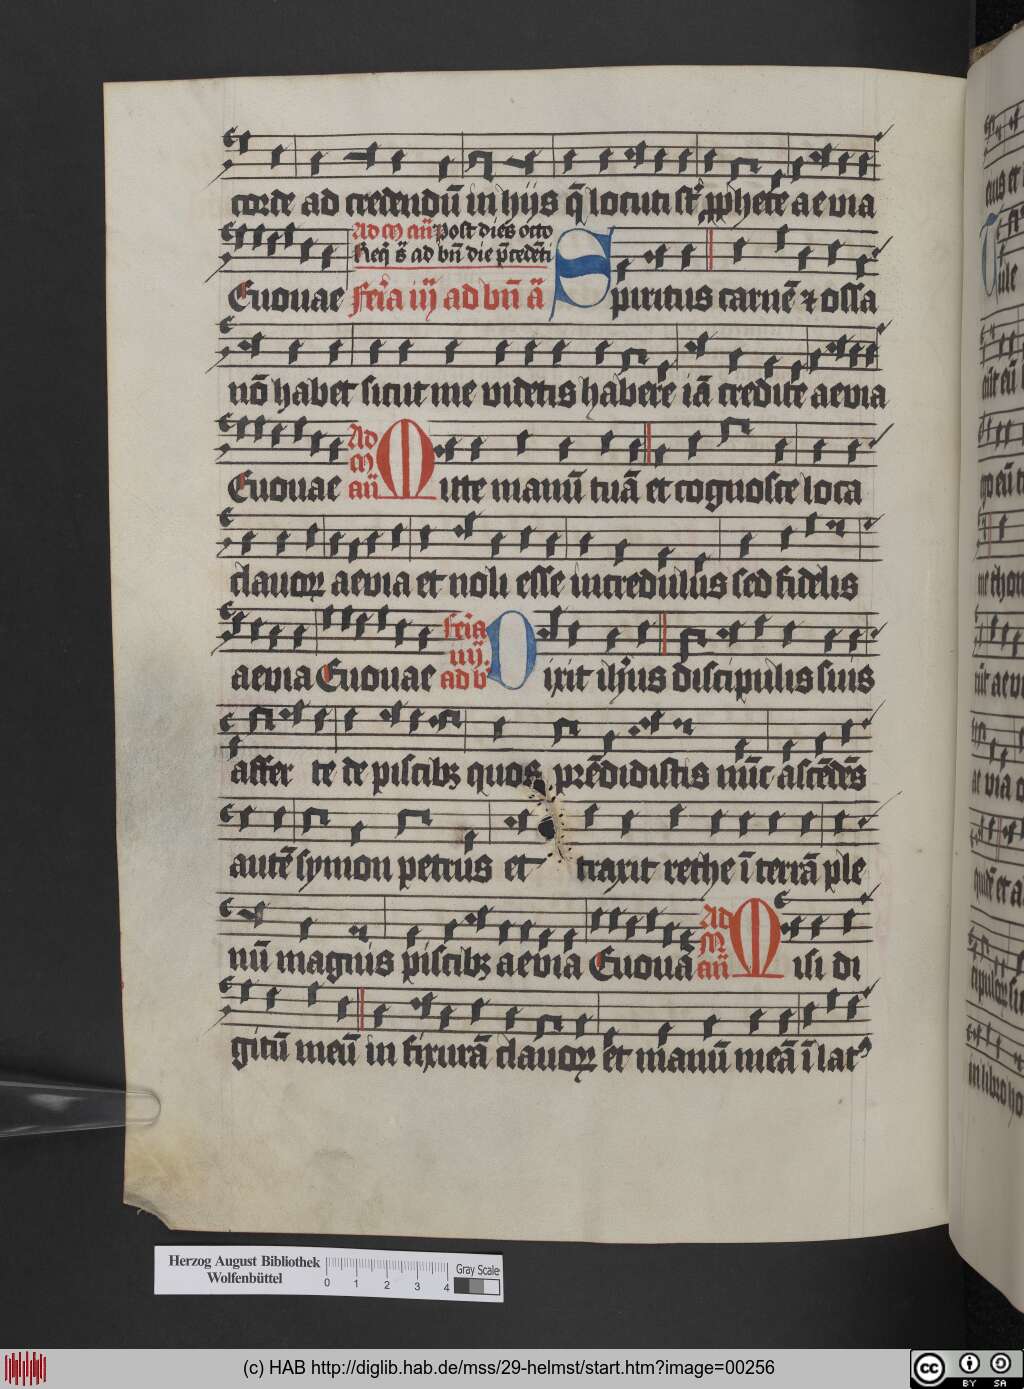 corde ad credendū in hijs q̄ locuti st̄ ꝓphete aevia
Ad m̄ añ Post dies octo
Req̄ s̄ ad bn̄ die p̄cedēti
Euouae Feria iij ad bn̄ ā Spiritus carnē ⁊ ossa
nō habet sicut me videtis habere iā credite aevia
Ad
m̄
añ
Euouae Mitte manū tuā et cognosce loca
clavoꝝ aevia et noli esse incredulus sed fidelis
feria
iiij.
ad b
aevia Euouae Dixit ihūs discipulis suis
affer te de piscibꝫ quos prēdidistis nūc ascēdēs
autē symon petrus et traxit rethe ī terrā ple
Ad
M
añ
nū magnis piscibꝫ aevia Euouā Misi di
gitū meū in fixurā clavoꝝ et manū meā ī lat⁹
Herzog August Bibliothek
Wolfenbüttel
0 1 2 3 4
Gray Scale
(c) HAB http://diglib.hab.de/mss/29-helmst/start.htm?image=00256
cc BY SA